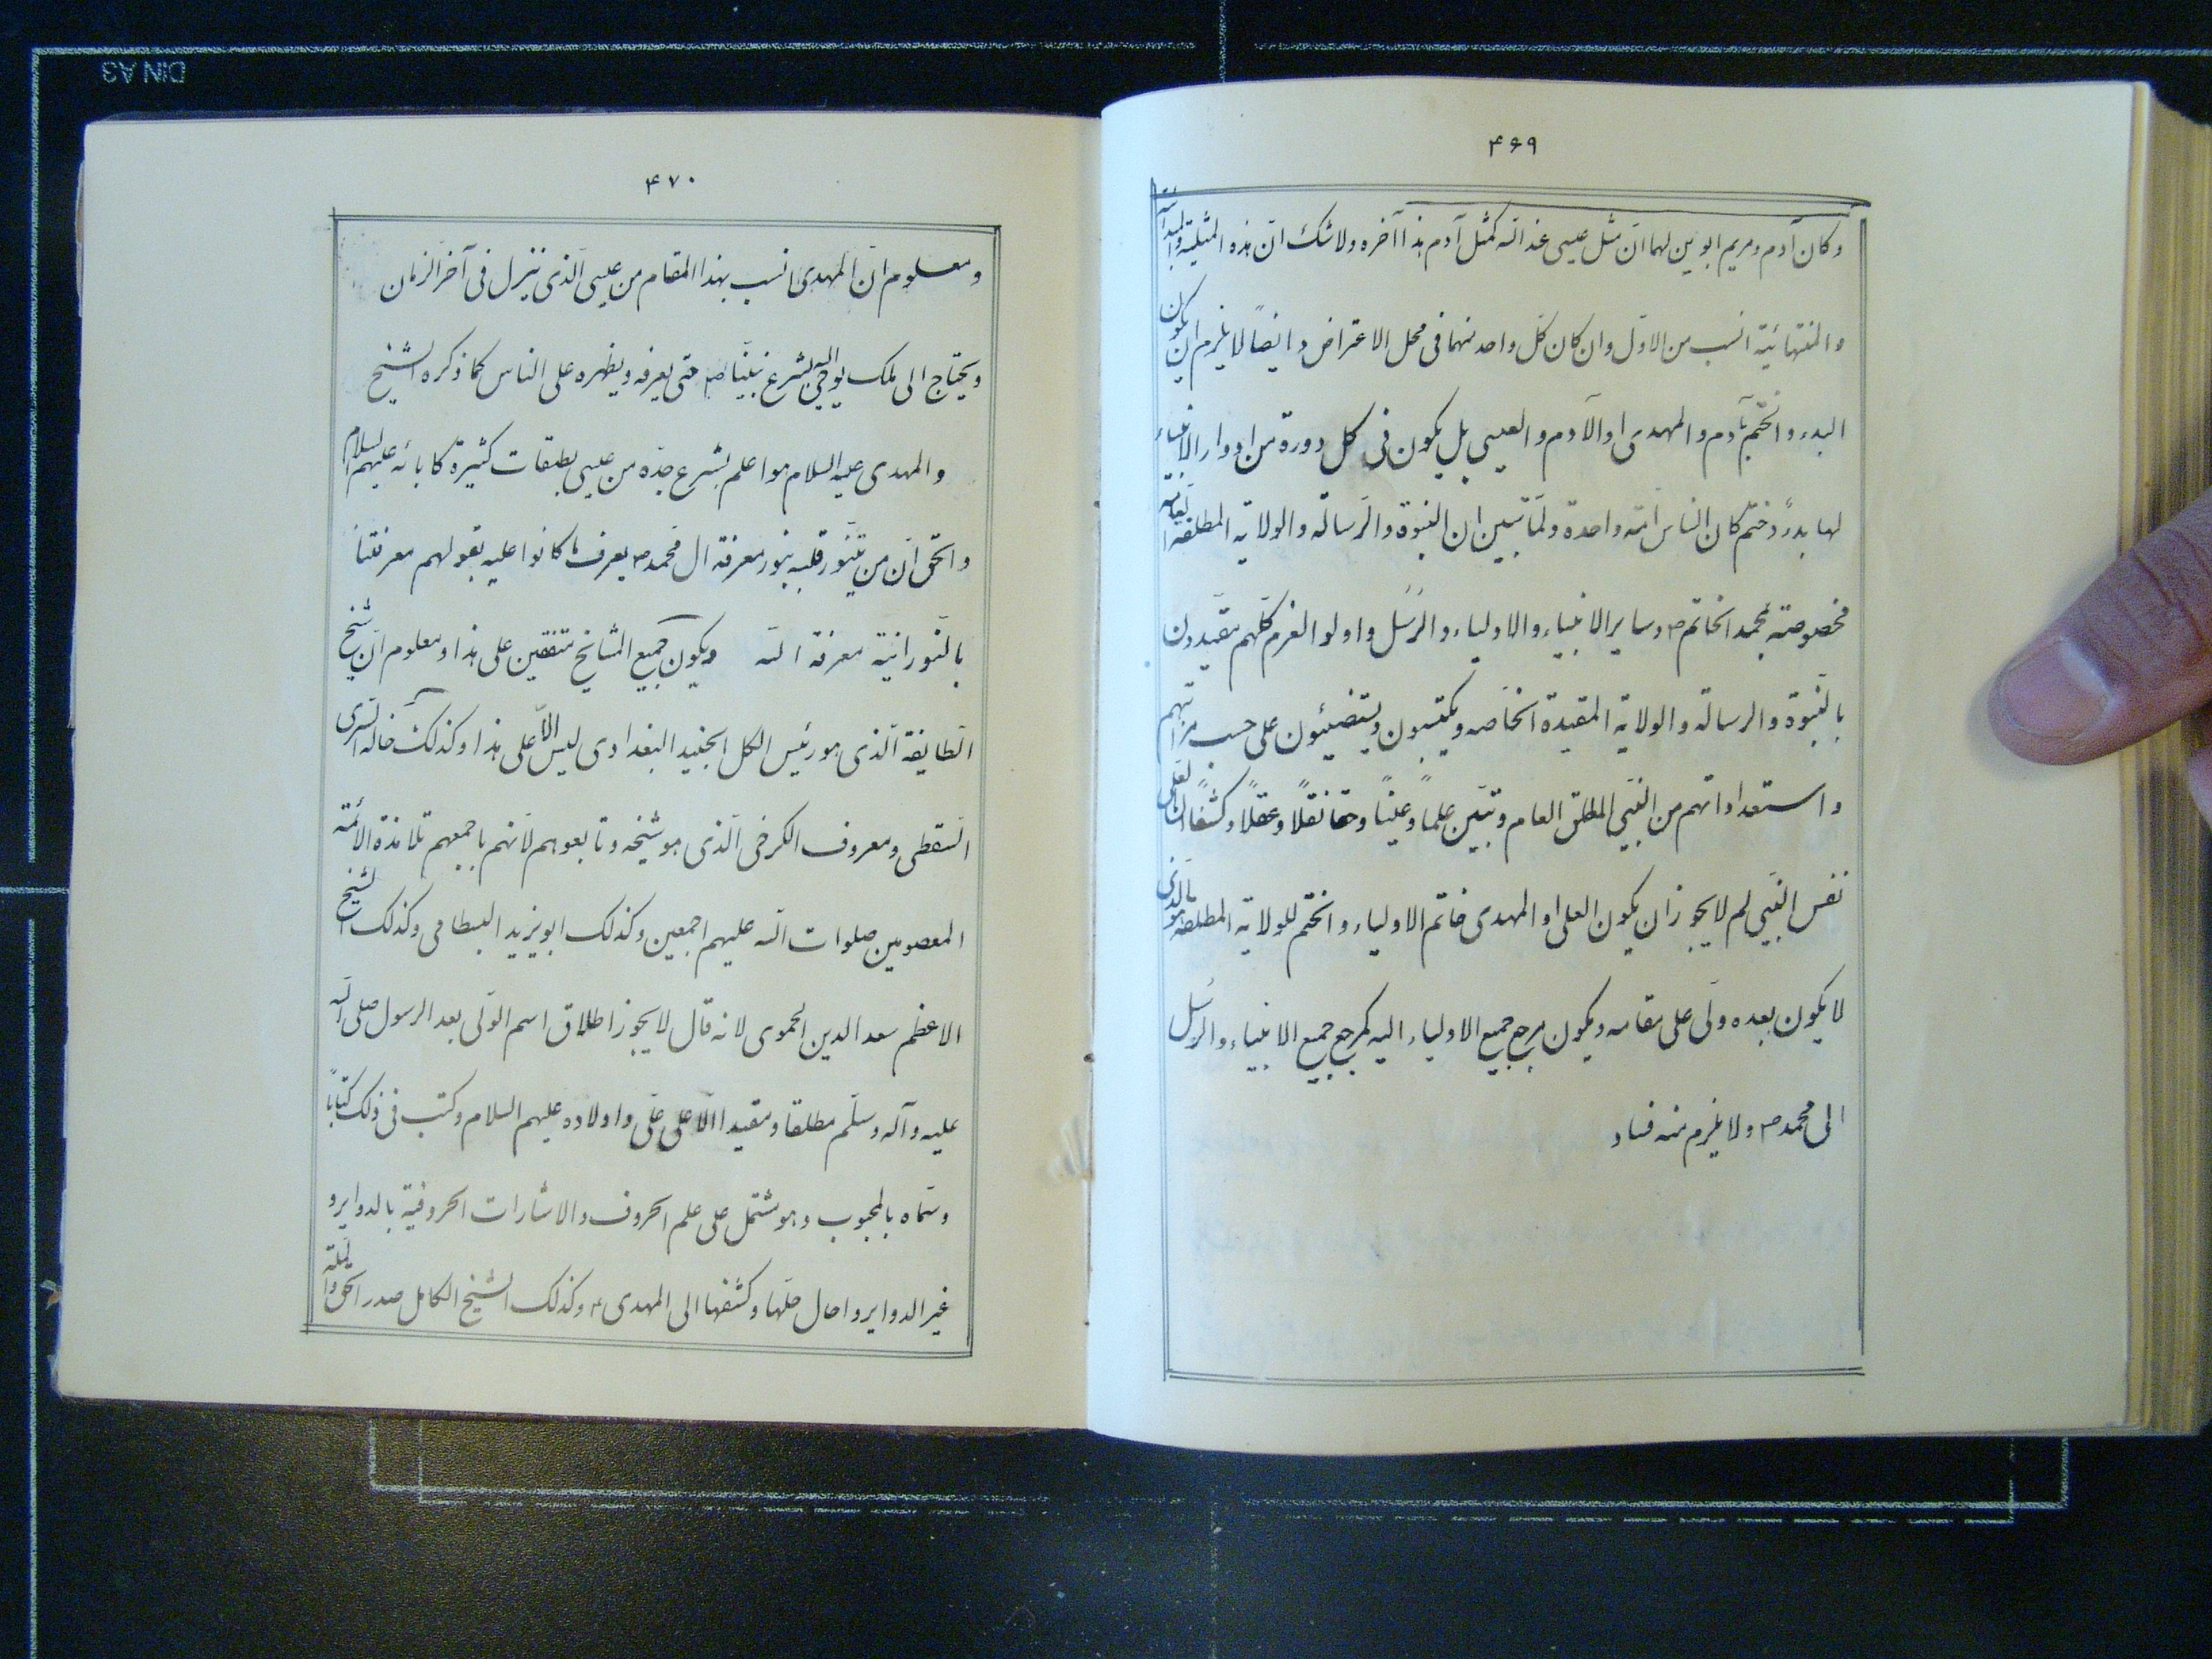 ۴۶۹
وكان آدم ومريم ابوين لهما ان مثل عيسى عند الله كمثل آدم هذا آخره ولا شك ان هذه المثلية والمبدائية
والمنتهائية انسب من الاول وان كان كل واحد منهما فى محل الاعتراض وايضاً لا يلزم ان يكون
البدء والختم بآدم والمهدى او الآدم والعيسى بل يكون فى كل دورة من ادوار الانبياء
لها بدءٌ وختمٌ كان الناس امة واحدة ولما تبين ان النبوة والرسالة والولاية المطلقة العامة
مخصوصة بمحمد الخاتم ص وساير الانبياء والاولياء والرسل واولوا العزم كلهم مقيدون
بالنبوة والرسالة والولاية المقيدة الخاصة ويكتسبون ويستضيئون على حسب مراتبهم
واستعداداتهم من النبى المطلق العام وتبين علماً وعيناً وحقا نقلاً وعقلاً وكشفاً ان لعلى
نفس النبى لم لا يجوز ان يكون العلى او المهدى خاتم الاولياء والختم للولاية المطلقة هو الذى
لا يكون بعده ولى على مقامه ويكون مرجع جميع الاولياء اليه كمرجع جميع الانبياء والرسل
الى محمد ص ولا يلزم منه فساد
۴۷۰
ومعلوم ان المهدى انسب بهذا المقام من عيسى الذى ينزل فى آخر الزمان
ويحتاج الى ملك يوحى اليه بشرع نبينا ص حتى يعرفه ويظهره على الناس كما ذكره الشيخ
والمهدى عليه السلام هو اعلم بشرع جده من عيسى بطبقات كثيرة كابائه عليهم السلام
والحق ان من تنور قلبه بنور معرفة ال محمد ص يعرف ما كانوا عليه بقولهم معرفتنا
بالنورانية معرفة الله ويكون جميع المشايخ متفقين على هذا ومعلوم ان شيخ
الطايفة الذى هو رئيس الكل الجنيد البغدادى ليس الا على هذا وكذلك خاله السرى
السقطى ومعروف الكرخى الذى هو شيخه وتابعوهم لانهم باجمعهم تلامذة الائمة
المعصومين صلوات الله عليهم اجمعين وكذلك ابو يزيد البسطامى وكذلك الشيخ
الاعظم سعد الدين الحموى لانه قال لا يجوز اطلاق اسم الولى بعد الرسول صلى الله
عليه وآله وسلم مطلقا ومقيدا الا على على واولاده عليهم السلام وكتب فى ذلك كتاباً
وسماه بالمحبوب وهو مشتمل على علم الحروف والاشارات الحروفية بالدواير و
غير الدواير واحال حلها وكشفها الى المهدى ع وكذلك الشيخ الكامل صدر الحق والملة
DIN A3